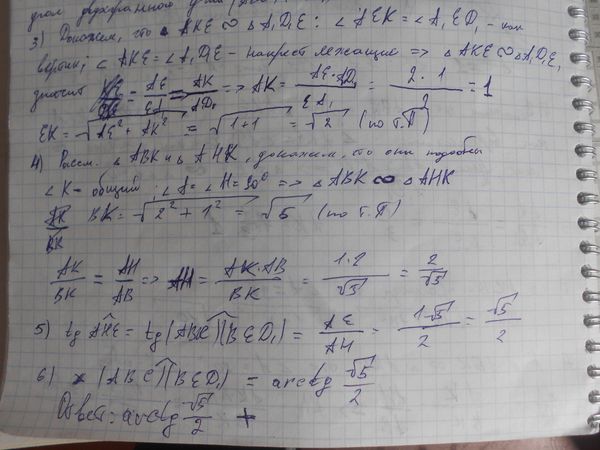 угол двухгранного угла (
3) Докажем, что △AKE ∞ △A₁D₁E: ∠AEK = ∠A₁ED₁ - как
вертик; ∠AKE = ∠A₁D₁E - накрест лежащие => △AKE ∞ △A₁D₁E,
значит = AE/EA₁ = AK/A₁D₁ => AK = AE·A₁D₁/EA₁ = 2·1/2 = 1
EK = √AE² + AK² = √1+1 = √2 (по т.П)
4) Рассм. △ABK и △AHK, докажем, что они подобны
∠K - общий; ∠A = ∠H = 90° => △ABK ∞ △AHK
BK = √2² + 1² = √5 (по т.П)
AK/BK = AH/AB => AH = AK·AB/BK = 1·2/√5 = 2/√5
5) tg AHE = tg (ABC)(BED₁) = AE/AH = 1·√5/2 = √5/2
6) (ABC)(BED₁) = arctg √5/2
Ответ: arctg √5/2 +